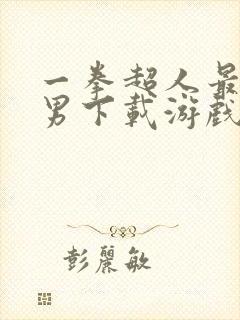 一拳超人最
男下载游戏
彭麗敏